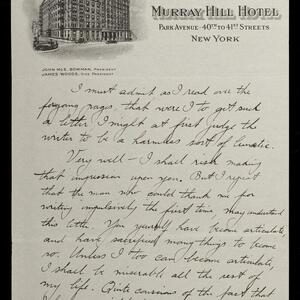 MURRAY HILL HOTEL
PARK AVENUE - 40TH TO 41ST STREETS
NEW YORK
JOHN McE. BOWMAN, PRESIDENT
JAMES WOODS, VICE PRESIDENT
I must admit as I read over the
forgoing pages, that were I to get such
a letter I might at first judge the
writer to be a harmless sort of lunatic.
Very well - I shall risk making
that impression upon you. But I repeat
that the man who could thank me for
writing impulsively the first time, may understand
this letter. You yourself have become articulate,
and have sacrificed many things to become
so. Unless I too can become articulate,
I shall be miserable all the rest of
my life. Quite conscious of the fact that